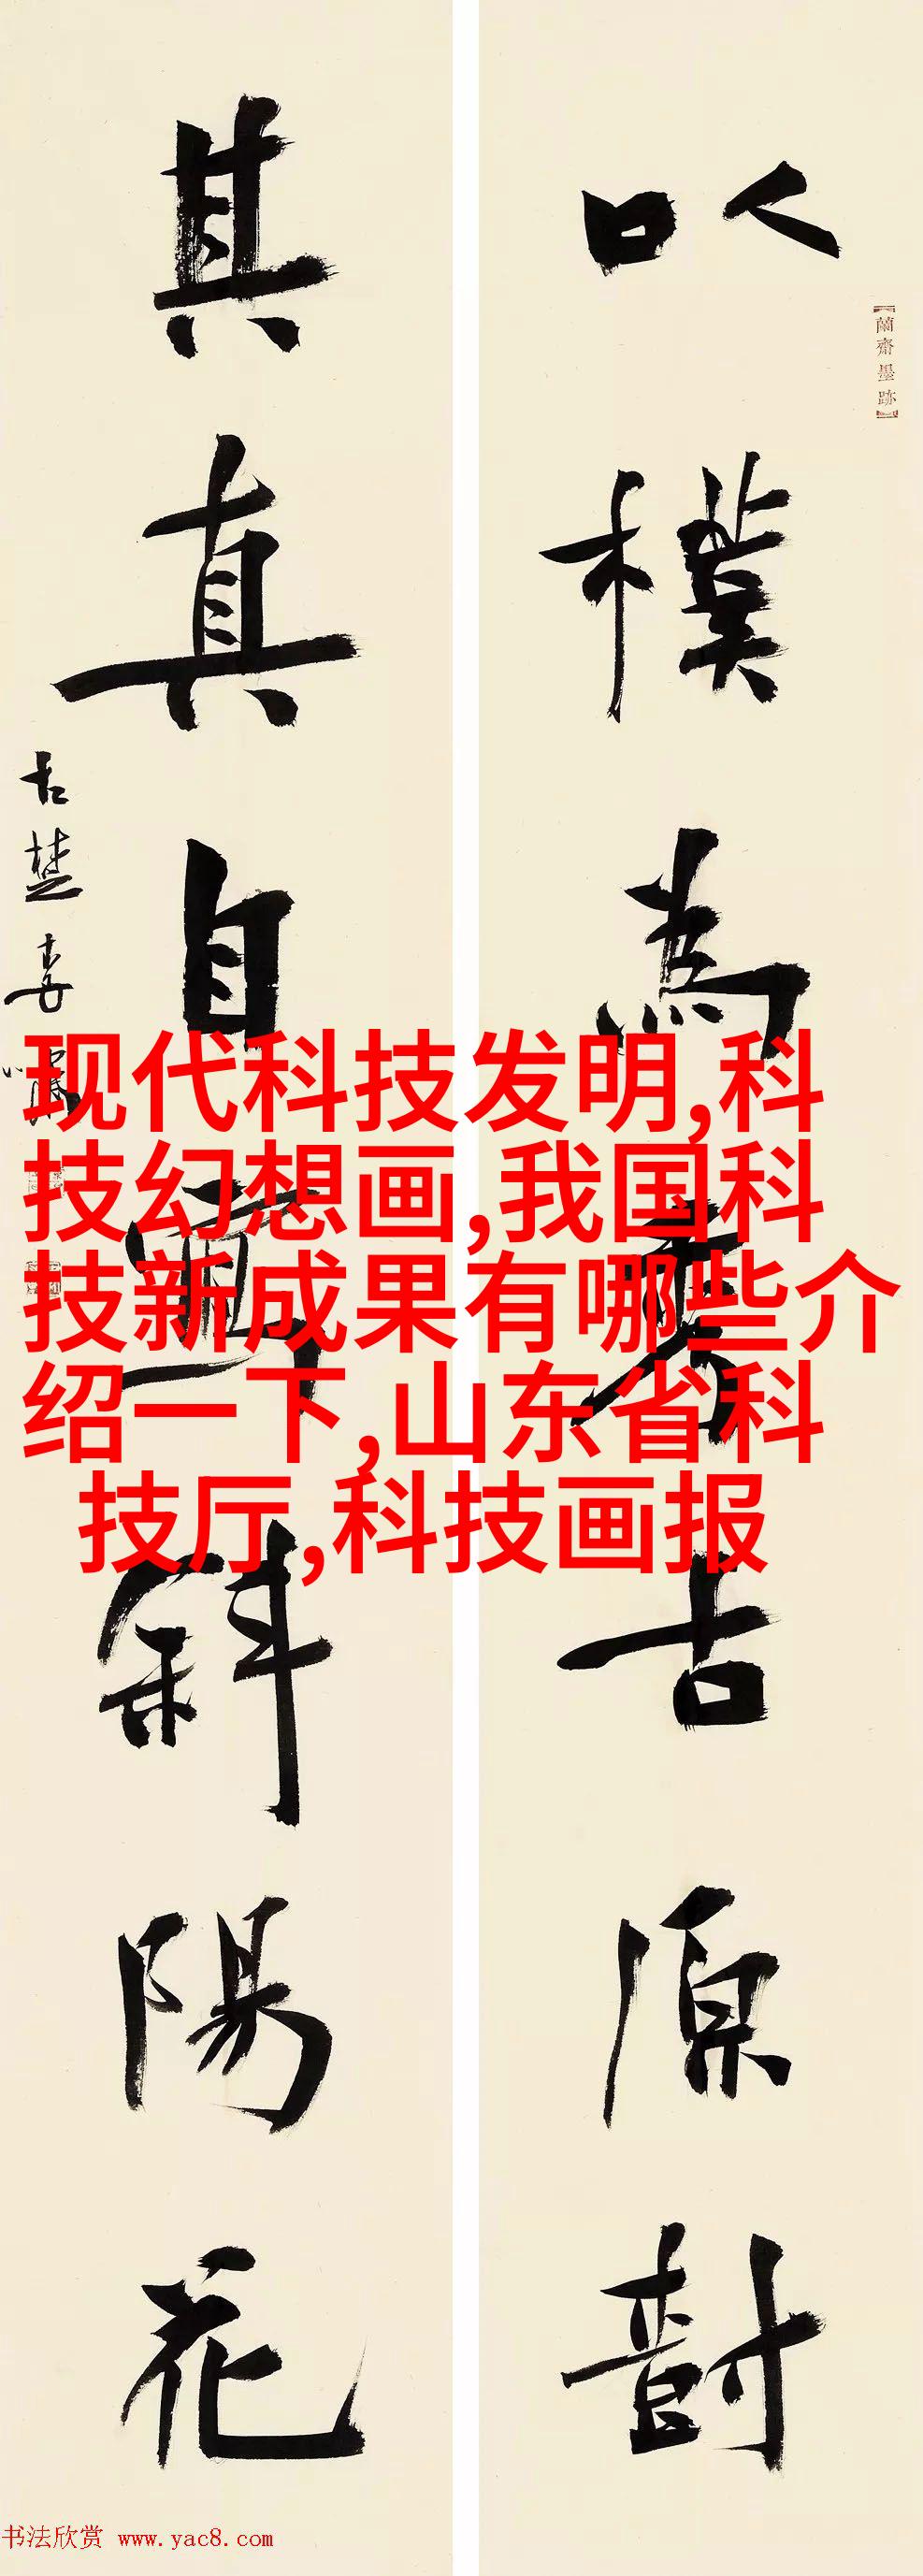 【蘭齋墨跡】
以樸為秀古原樹
其真自寫斜陽花
古楚李
现代科技发明,科
技幻想画,我国科
技新成果有哪些介
绍一下,山东省科
技厅,科技画报
书法欣赏 www.yac8.com